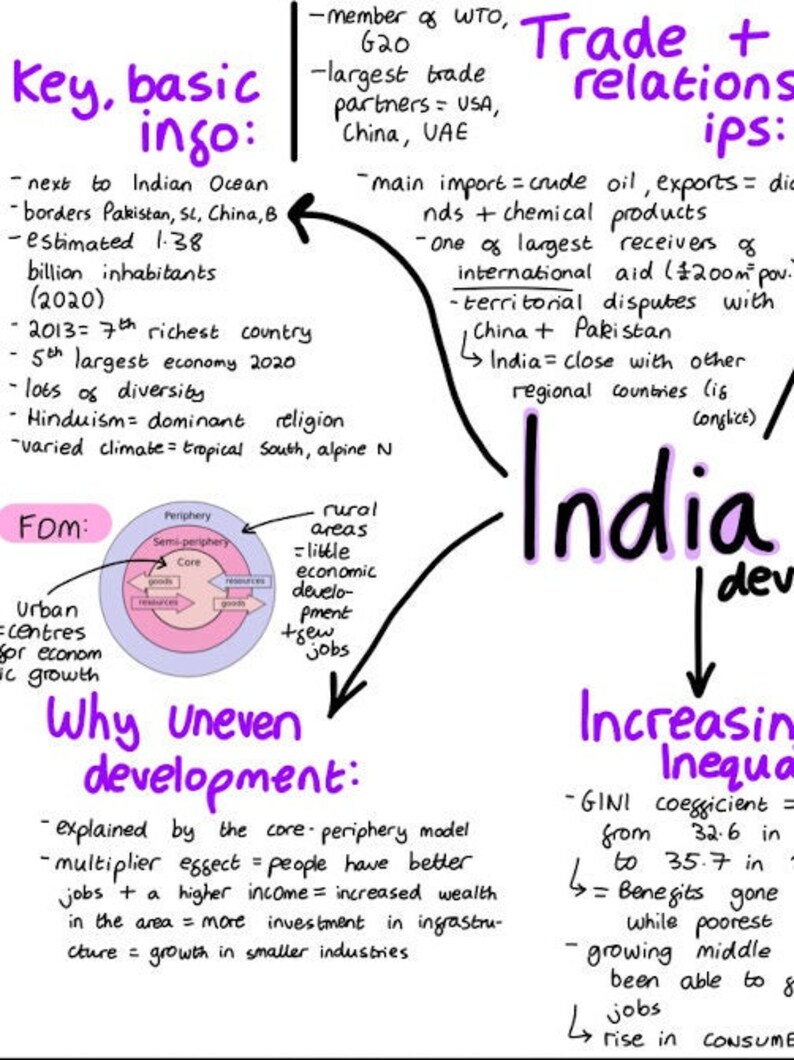 Key, basic
info:
- next to Indian Ocean
- borders Pakistan, SL, China, B
- estimated 1.38
billion inhabitants
(2020)
- 2013 = 7th richest country
- 5th largest economy 2020
- lots of diversity
- Hinduism = dominant religion
- varied climate = tropical South, alpine N
- member of WTO,
G20
- largest trade
partners = USA,
China, UAE
Trade +
relations
ips:
- main import = crude oil, exports = dia
nds + chemical products
- one of largest receivers of
international aid (£200m = pov.
- territorial disputes with
China + Pakistan
↳ India = close with other
regional countries (if
conflict)
India
dev
FDM:
Periphery
Semi-periphery
Core
goods
resources
resources
goods
rural
areas
= little
economic
develo-
pment
+ few
jobs
Urban
= centres
for econom
ic growth
Why Uneven
development:
- explained by the core-periphery model
- multiplier effect = people have better
jobs + a higher income = increased wealth
in the area = more investment in infrastru-
cture = growth in smaller industries
Increasin
Inequa
- GINI coefficient =
from 32.6 in
to 35.7 in
↳ = Benefits gone
while poorest
- growing middle
been able to
jobs
↳ rise in CONSUME